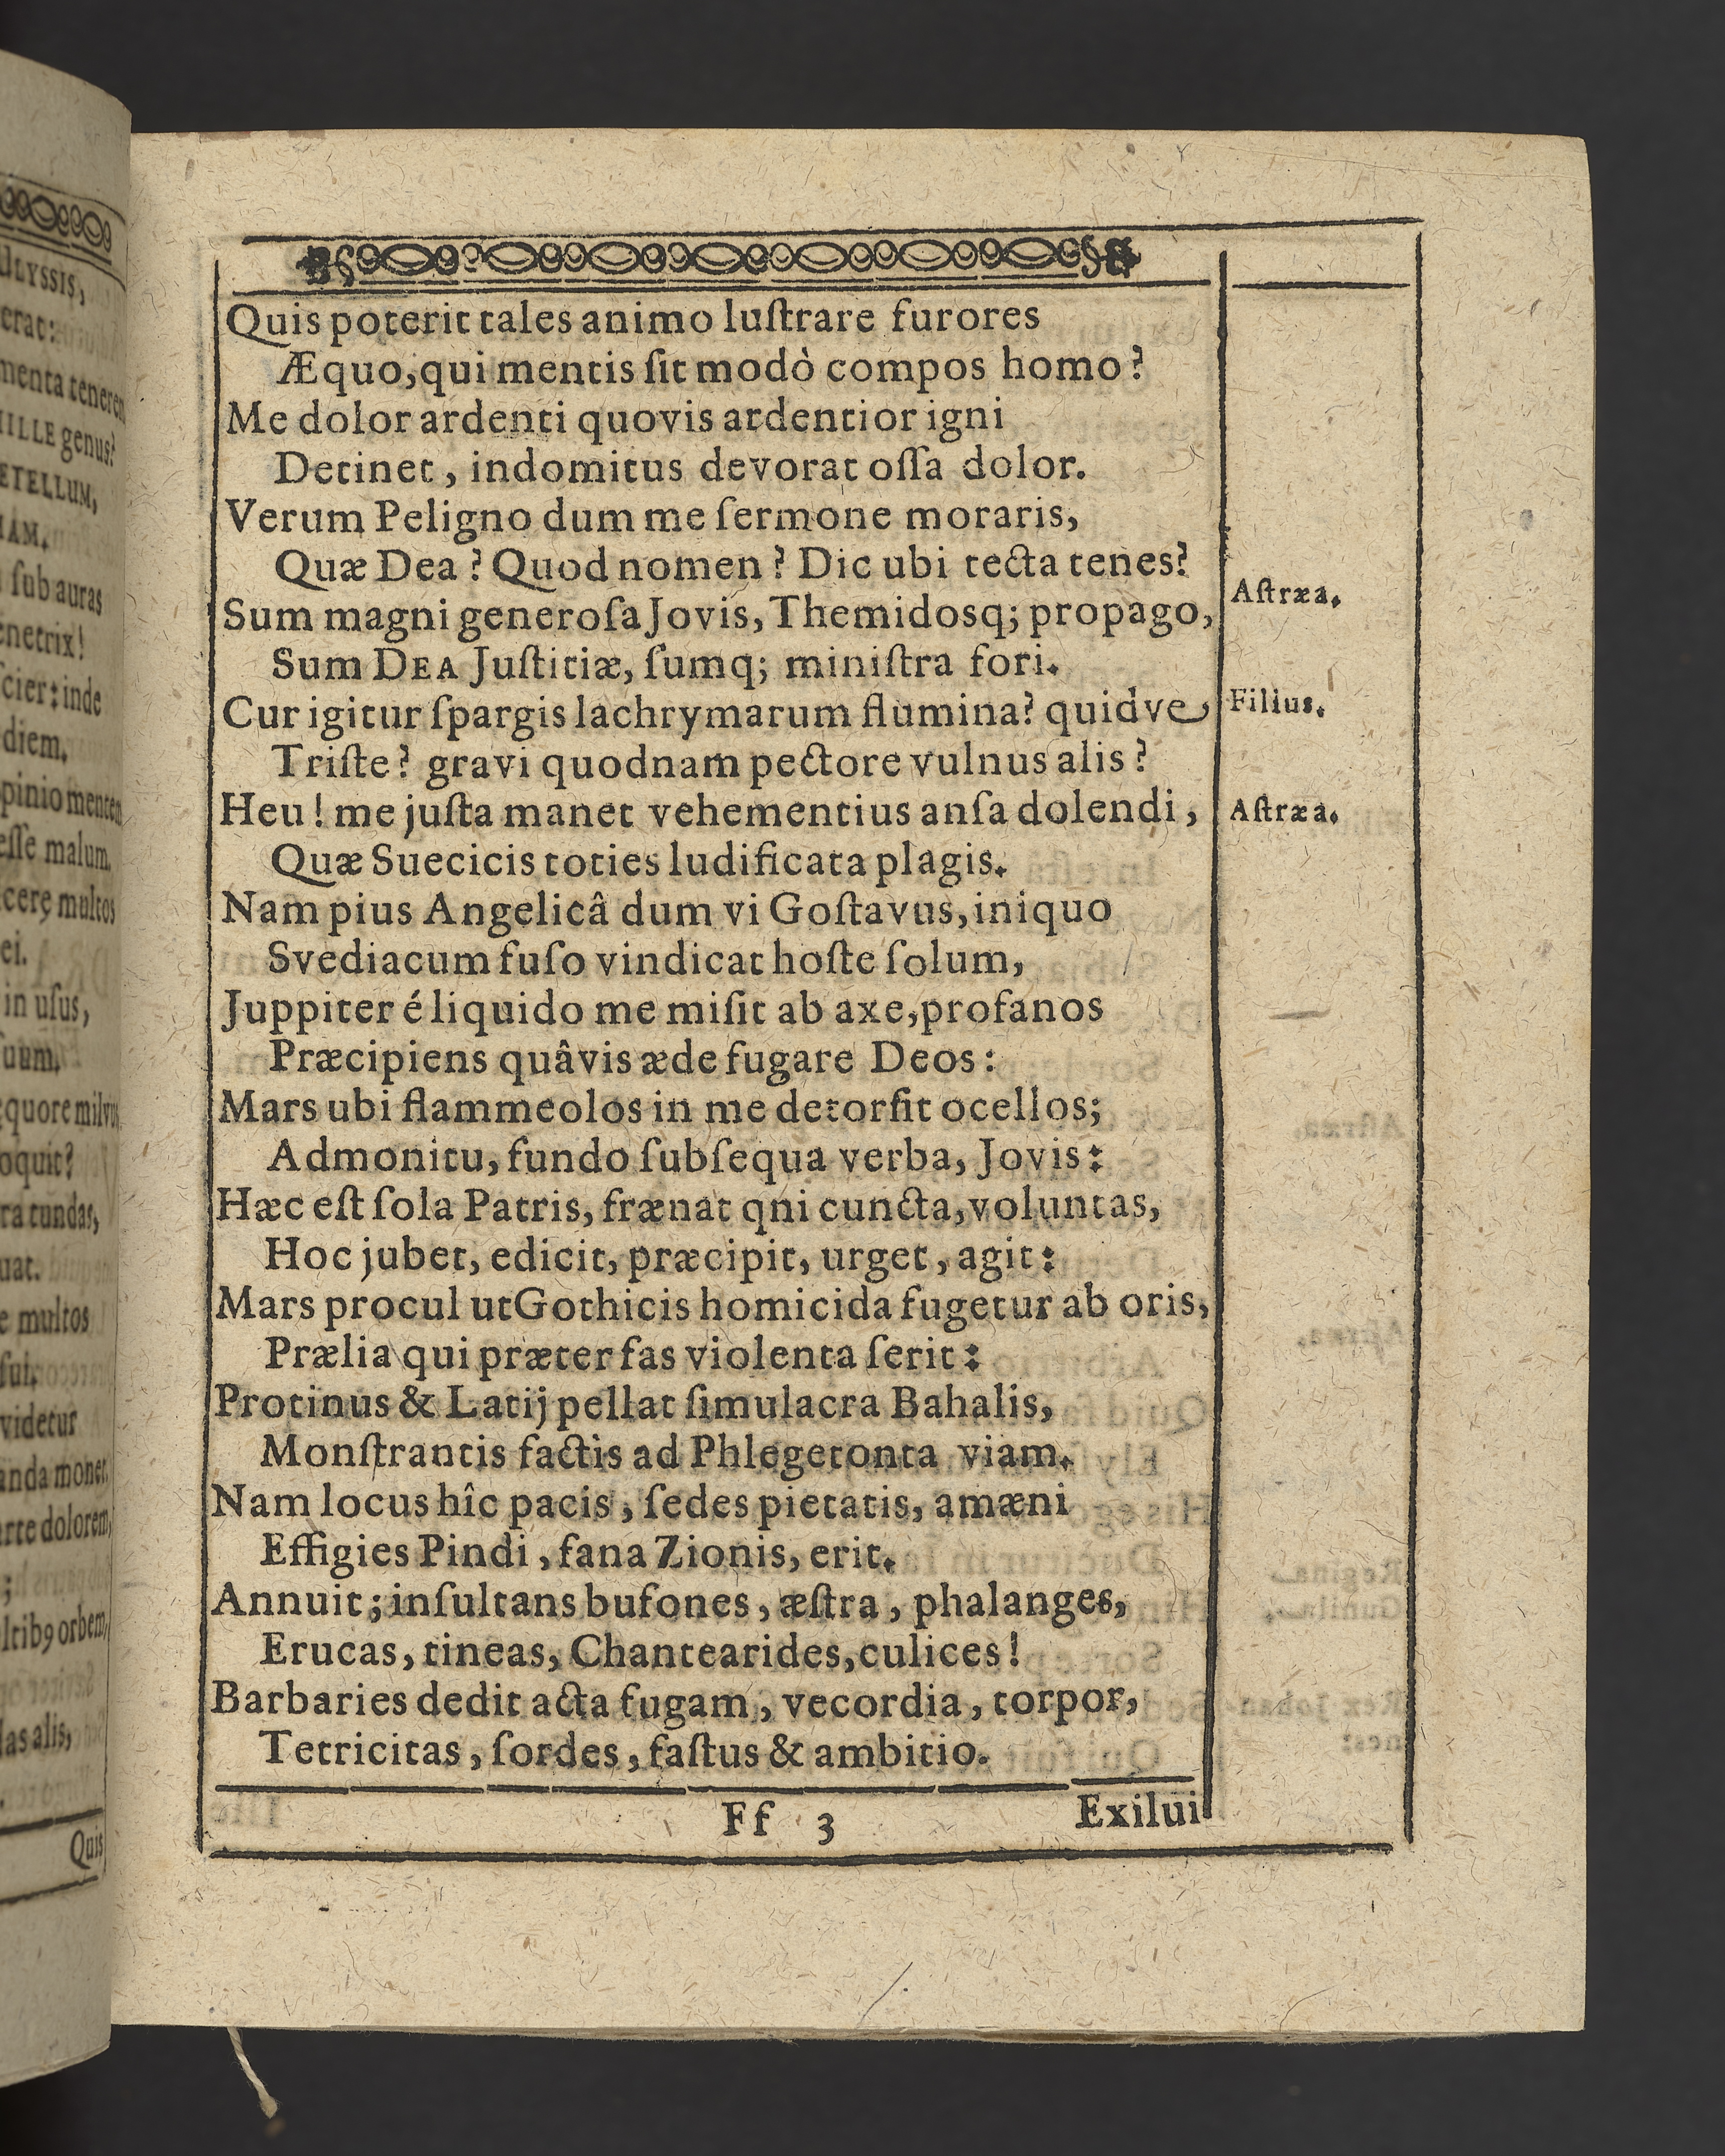 Quis poterit tales animo luſtrare furores
Æquo, qui mentis ſit modò compos homo?
Me dolor ardenti quovis ardentior igni
Detinet, indomitus devorat oſſa dolor.
Verum Peligno dum me ſermone moraris,
Quæ Dea? Quod nomen? Dic ubi tecta tenes?
Sum magni generoſa Jovis, Themidosq; propago,
Astræa.
Sum DEA Juſtitiæ, ſumq; miniſtra fori.
Cur igitur ſpargis lachrymarum flumina? quidve
Filius.
Triſte? gravi quodnam pectore vulnus alis?
Heu! me juſta manet vehementius anſa dolendi,
Aſtræa.
Quæ Suecicis toties ludificata plagis.
Nam pius Angelicâ dum vi Goſtavus, iniquo
Svediacum fuſo vindicat hoſte ſolum,
Juppiter é liquido me miſit ab axe, profanos
Præcipiens quâvis æde fugare Deos:
Mars ubi flammeolos in me detorſit ocellos;
Admonitu, fundo ſubſequa verba, Jovis:
Hæc eſt ſola Patris, frænat qni cuncta, voluntas,
Hoc jubet, edicit, præcipit, urget, agit:
Mars procul ut Gothicis homicida fugetur ab oris,
Prælia qui præter fas violenta ſerit:
Protinus & Latij pellat ſimulacra Bahalis,
Monſtrantis factis ad Phlegetonta viam.
Nam locus hîc pacis, ſedes pietatis, amæni
Effigies Pindi, fana Zionis, erit.
Annuit; inſultans bufones, æſtra, phalanges,
Erucas, tineas, Chantearides, culices!
Barbaries dedit acta fugam, vecordia, torpor,
Tetricitas, ſordes, faſtus & ambitio.
Ff 3
Exilui